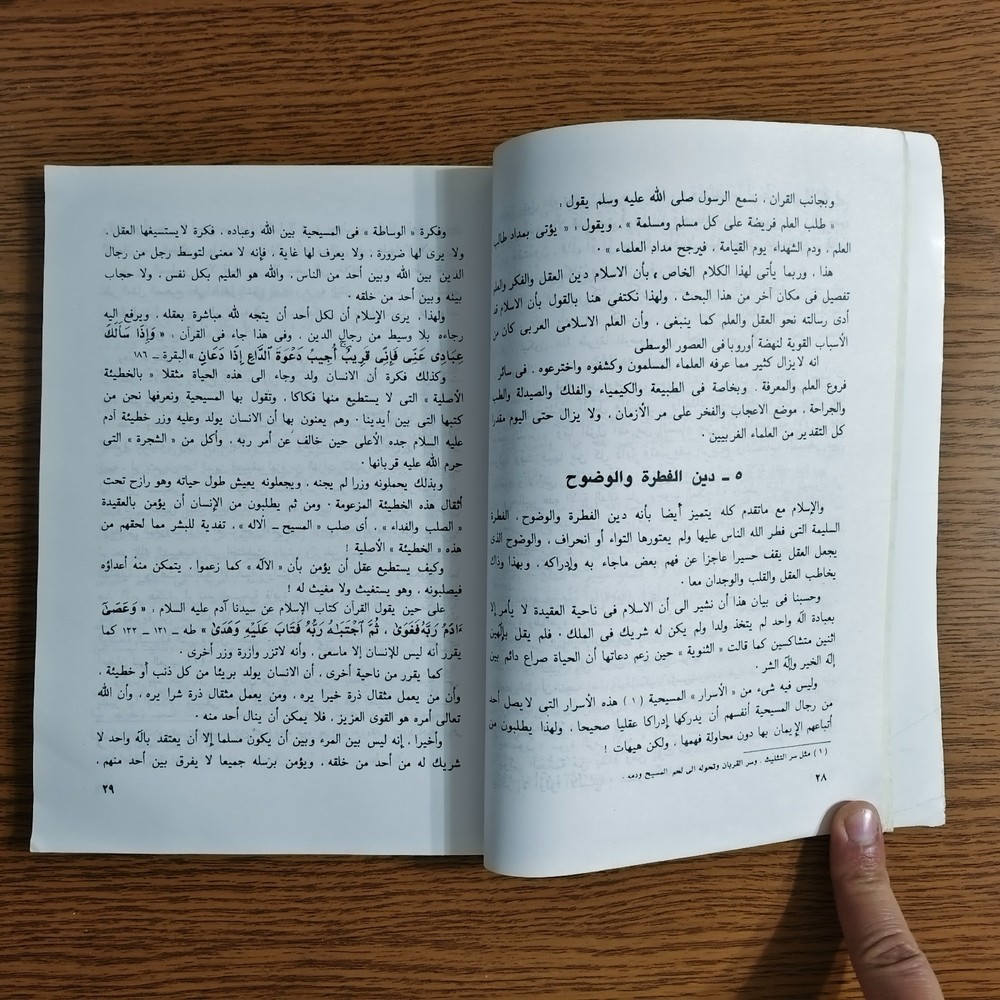 وبجانب القرآن ، نسمع الرسول صلى الله عليه وسلم يقول :
« طلب العلم فريضة على كل مسلم ومسلمة » ، ويقول ، « يؤتى بمداد طالب
العلم ، ودم الشهداء يوم القيامة ، فيرجح مداد العلماء » .
هذا ، وربما يأتى لهذا الكلام الخاص ، بأن الاسلام دين العقل والفكر والعلم
تفصيل فى مكان آخر من هذا البحث ، ولهذا نكتفى هنا بالقول بأن الاسلام قد
أدى رسالته نحو العقل والعلم كما ينبغى ، وأن العلم الاسلامى العربى كان من
الأسباب القوية لنهضة أوروبا فى العصور الوسطى
انه لايزال كثير مما عرفه العلماء المسلمون وكشفوه واخترعوه ، فى سائر
فروع العلم والمعرفة ، وبخاصة فى الطبيعة والكيمياء والفلك والصيدلة والطب
والجراحة ، موضع الاعجاب والفخر على مر الأزمان ، ولا يزال حتى اليوم مقدرا
كل التقدير من العلماء الغربيين .
٥ ـ دين الفطرة والوضوح
والإسلام مع ماتقدم كله يتميز أيضا بأنه دين الفطرة والوضوح ، الفطرة
السليمة التى فطر الله الناس عليها ولم يعتورها التواء أو انحراف ، والوضوح الذى
يجعل العقل يقف حسيرا عاجزا عن فهم بعض ماجاء به وإدراكه ، وبهذا وذاك
يخاطب العقل والقلب والوجدان معا .
وحسبنا فى بيان هذا أن نشير الى أن الاسلام فى ناحية العقيدة لا يأمر إلا
بعبادة اله واحد لم يتخذ ولدا ولم يكن له شريك فى الملك . فلم يقل بإلهين
اثنين متشاكسين كما قالت « الثنوية » حين زعم دعاتها أن الحياة صراع دائم بين
إله الخير وإله الشر .
وليس فيه شىء من « الأسرار » المسيحية (١) هذه الأسرار التى لايصل أحد
من رجال المسيحية أنفسهم أن يدركها إدراكا عقليا صحيحا ، ولهذا يطلبون من
أتباعهم الإيمان بها دون محاولة فهمها ، ولكن هيهات !
(١) مثل سر التثليث ، وسر القربان وتحوله الى لحم المسيح ودمه .
٢٨
وفكرة « الوساطة » فى المسيحية بين الله وعباده ، فكرة لايستسيغها العقل ،
ولا يرى لها ضرورة ، ولا يعرف لها غاية ، فإنه لا معنى لتوسط رجل من رجال
الدين بين الله وبين أحد من الناس ، والله هو العليم بكل نفس ، ولا حجاب
بينه وبين أحد من خلقه .
ولهذا ، يرى الإسلام أن لكل أحد أن يتجه لله مباشرة بعقله ، ويرفع إليه
رجاءه بلا وسيط من رجال الدين ، وفى هذا جاء فى القرآن ، « وَإِذَا سَأَلَكَ
عِبَادِى عَنِّى فَإِنِّى قَرِيبٌ أُجِيبُ دَعْوَةَ ٱلدَّاعِ إِذَا دَعَانِ » البقرة ـ ١٨٦
وكذلك فكرة أن الانسان ولد وجاء الى هذه الحياة مثقلا « بالخطيئة
الأصلية » التى لا يستطيع منها فكاكا ، وتقول بها المسيحية ونعرفها نحن من
كتبها التى بين أيدينا . وهم يعنون بها أن الانسان يولد وعليه وزر خطيئة آدم
عليه السلام جده الأعلى حين خالف عن أمر ربه ، وأكل من « الشجرة » التى
حرم الله عليه قربانها .
وبذلك يحملونه وزرا لم يجنه ، ويجعلونه يعيش طول حياته وهو رازح تحت
أثقال هذه الخطيئة المزعومة . ومن ثم يطلبون من الإنسان أن يؤمن بالعقيدة
« الصلب والفداء » ، أى صلب « المسيح ـ الاله » ، تفدية للبشر مما لحقهم من
هذه « الخطيئة » الأصلية !
وكيف يستطيع عقل أن يؤمن بأن « الاله » كما زعموا ، يتمكن منه أعداؤه
فيصلبونه ، وهو يستغيث ولا مغيث له !
على حين يقول القرآن كتاب الإسلام عن سيدنا آدم عليه السلام ، « وَعَصَىٰٓ
ءَادَمُ رَبَّهُۥ فَغَوَىٰ ، ثُمَّ ٱجْتَبَٰهُ رَبُّهُۥ فَتَابَ عَلَيْهِ وَهَدَىٰ » طه ـ ١٢١ ـ ١٢٢ كما
يقرر أنه ليس للإنسان إلا ماسعى ، وأنه لاتزر وازرة وزر أخرى .
كما يقرر من ناحية أخرى ، أن الانسان يولد بريئا من كل ذنب أو خطيئة ،
وأن من يعمل مثقال ذرة خيرا يره ، ومن يعمل مثقال ذرة شرا يره ، وأن الله
تعالى أمره هو القوى العزيز ، فلا يمكن أن ينال أحد منه .
وأخيرا ، إنه ليس بين المرء وبين أن يكون مسلما إلا أن يعتقد باله واحد لا
شريك له من أحد من خلقه ، ويؤمن برسله جميعا لا يفرق بين أحد منهم ،
٢٩